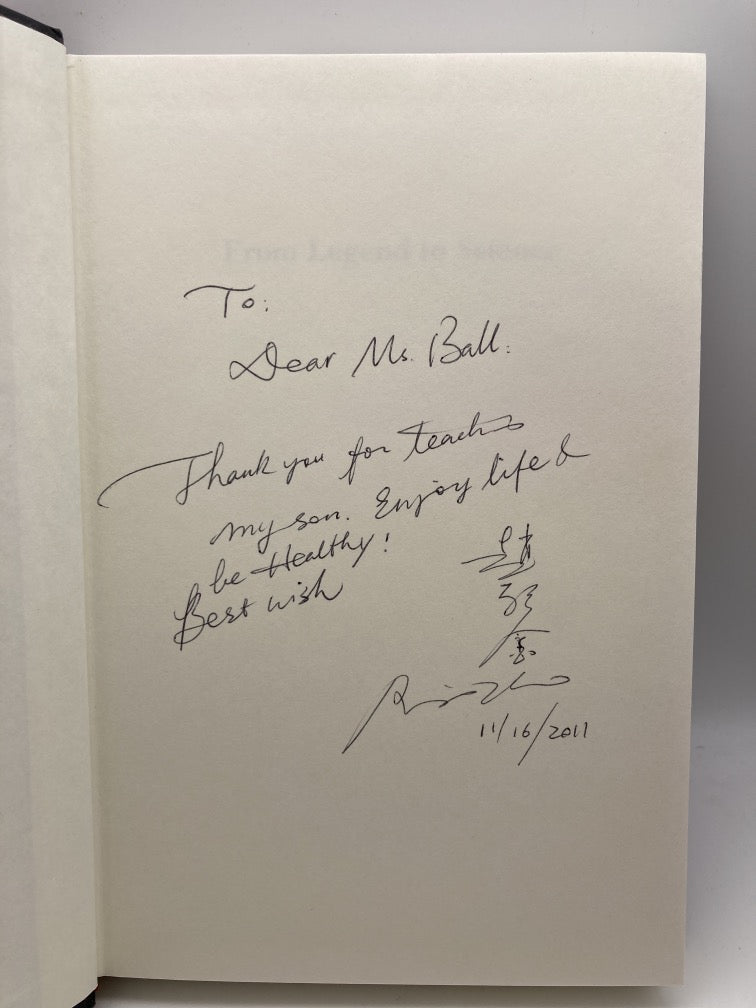 From Legend to Science
To:
Dear Ms. Ball:
Thank you for teaching
my son. Enjoy life &
be Healthy!
Best wish
趙
11/16/2011